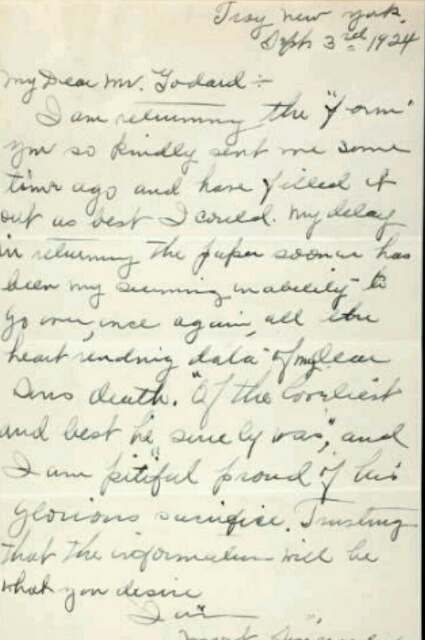 Troy New York.
Sept 3rd 1924
My Dear Mr. Godard :-
I am returning the "form"
you so kindly sent me some
time ago and have filled it
out as best I could. My delay
in returning the paper sooner has
been my seeming inability to
go over, once again, all the
heart rending data of my dear
sons death. "Of the loveliest
and best he surely was", and
I am pitiful proud of his
glorious sacrifice. Trusting
that the information will be
what you desire
I am